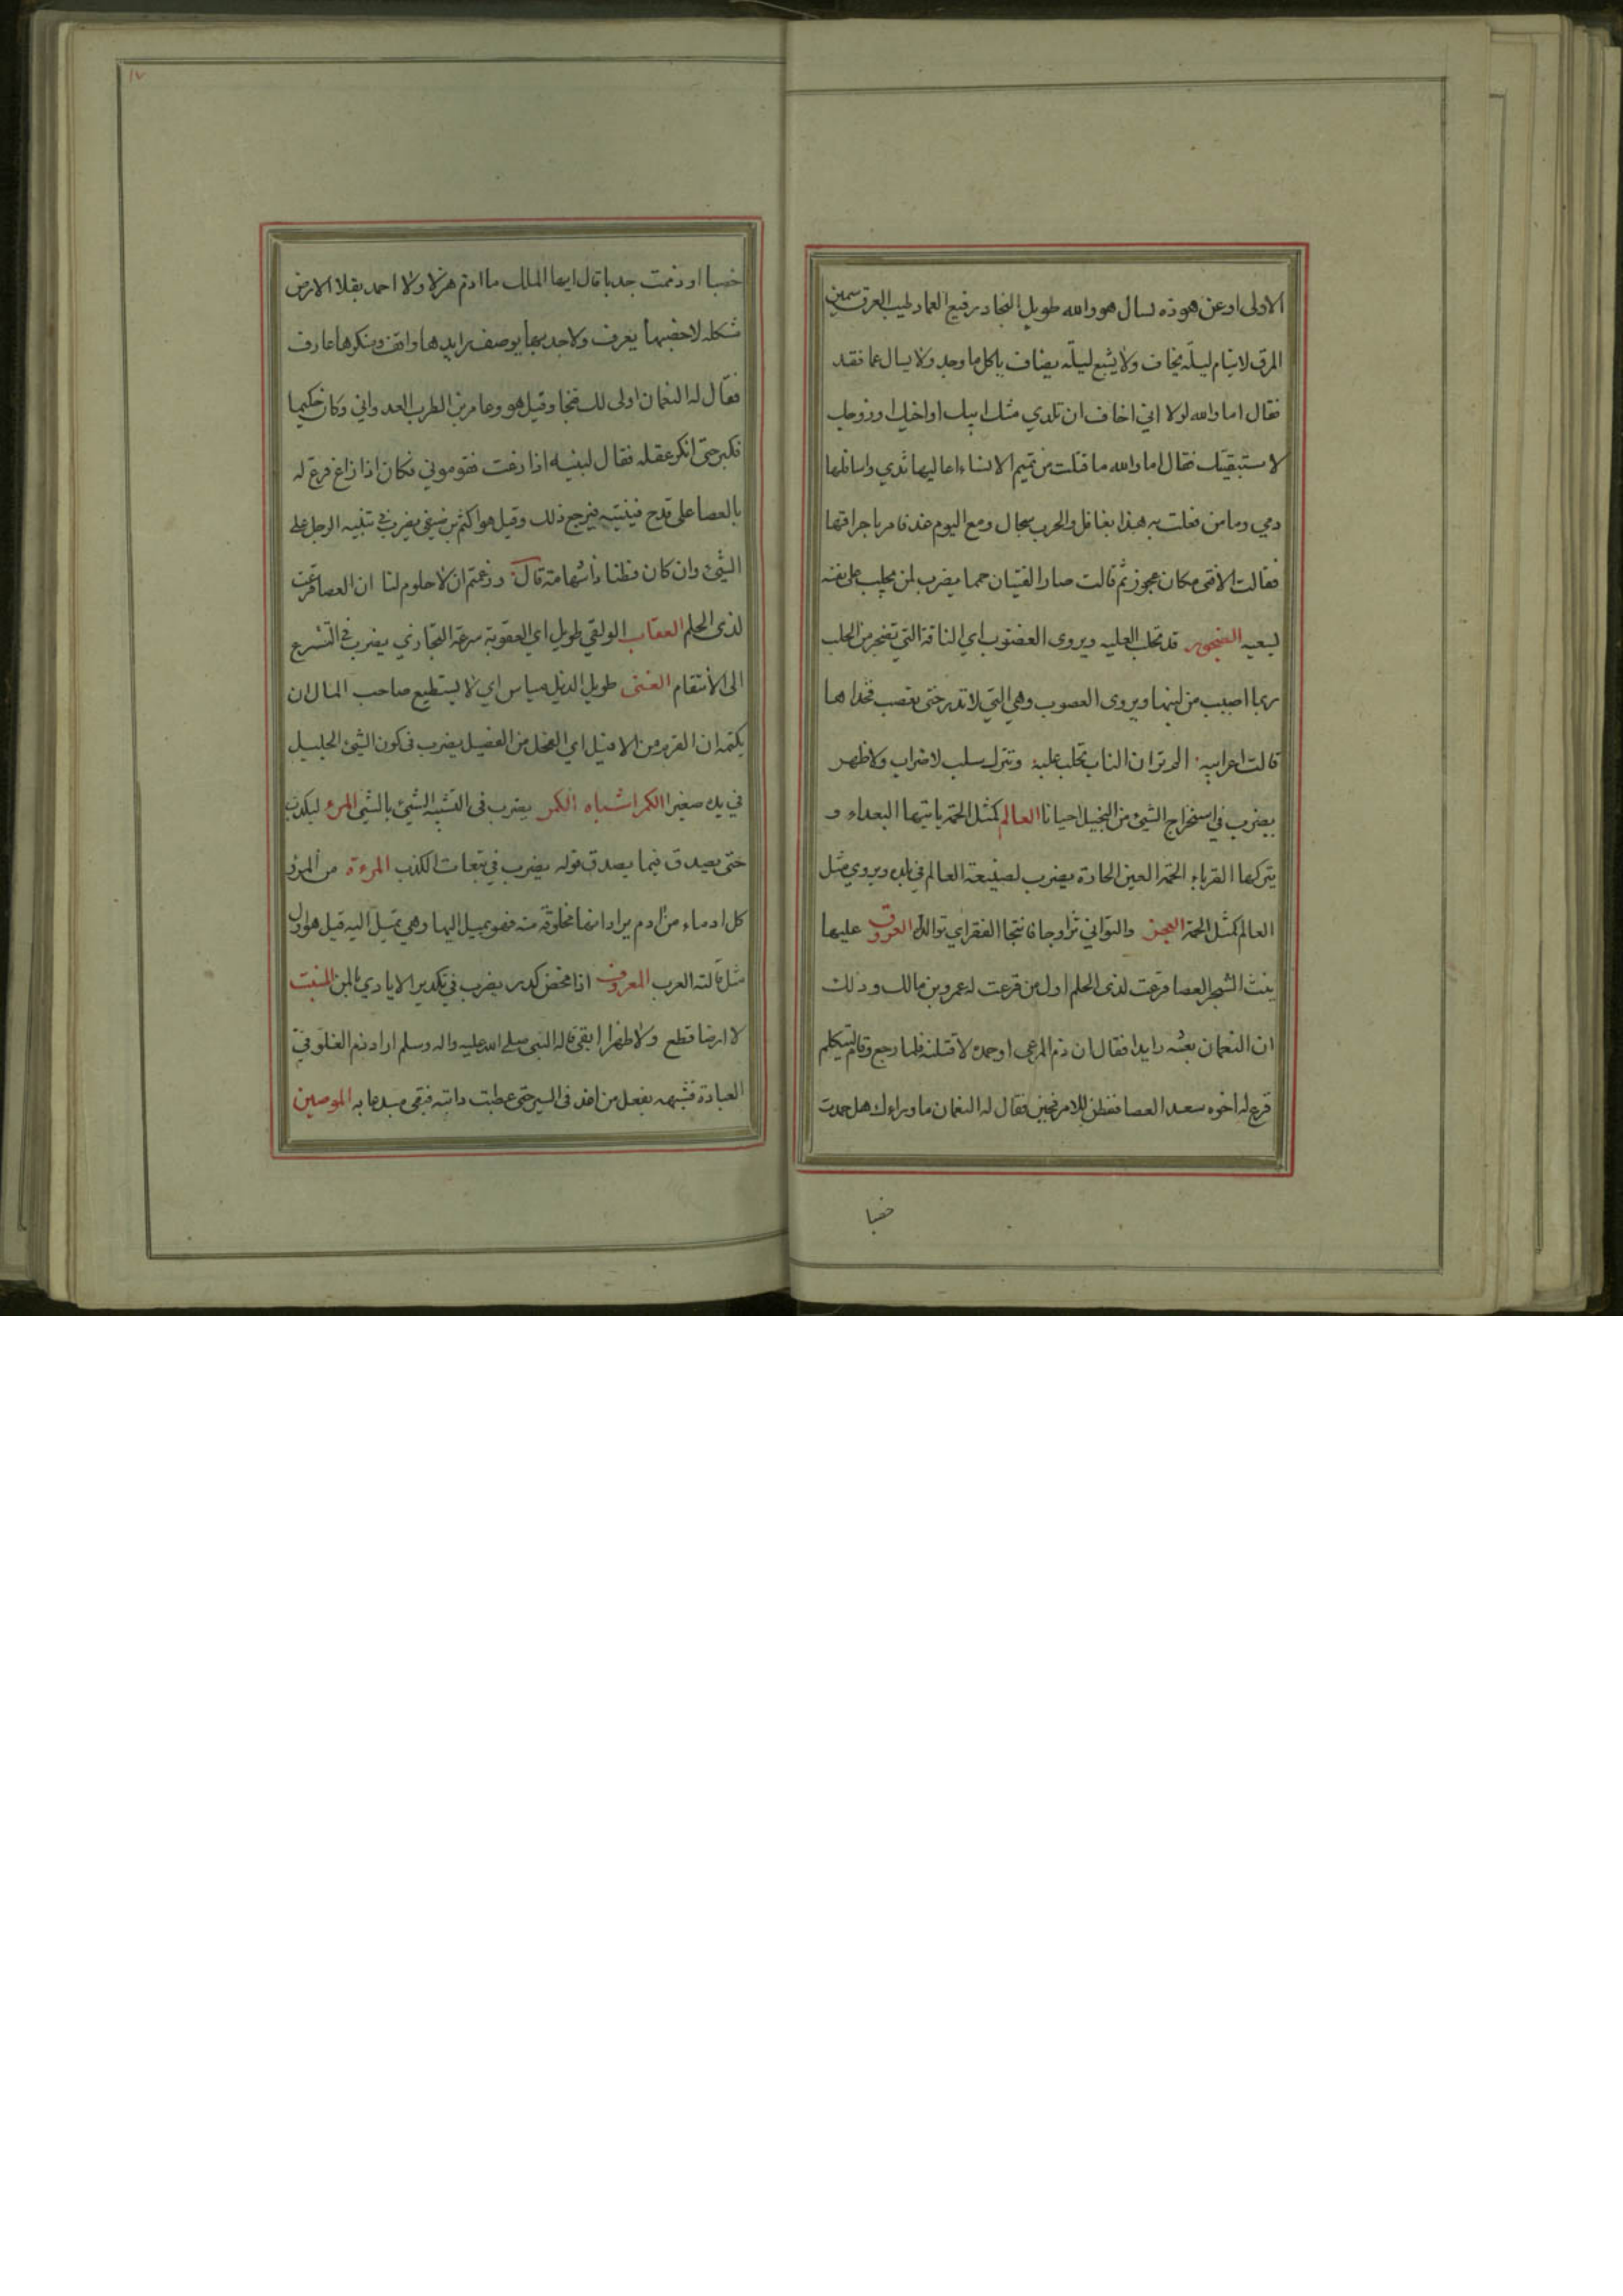 الاولى او عن هوذه تسال هو والله طويل النجاد رفيع العماد طيب العرق سمين
المرق لا ينام ليلة يخاف ولا يشبع ليلة يضاف ياكل ما وجد ولا يسال عما فقد
فقال اما والله لولا اني اخاف ان تلدي مثل ابيك او اخيك او زوجك
لاستبقيتك فقال اما والله ما قتلت من تميم الا نساء اعاليها ثدي واسافلها
دمي وما من فعلت به هذا بغافل والحرب سجال ومع اليوم غد فامر باحراقها
فقالت الا فتى مكان عجوز ثم قالت صار الفتيان حمما يضرب لمن يجلب على نفسه
لسعيه الضجور قد تحلب العلبه ويروى العضوب اي الناقة التي تضجر من الحلب
ربما اصيب من لبنها ويروى العصوب وهي التي لا تدر حتى يعصب فخذاها
قالت اعرابيه الم تر ان الناب تحلب علبة ويترك سلب لا ضراب ولا ظهر
يضرب في استخراج الشيء من البخيل احيانا العالم كمثل الحمة ياتيها البعداء و
يتركها القرباء الحمة العين الحارة يضرب لضيعة العالم في بلده ويروي مثل
العالم كمثل الحمة العجز والتواني تزاوجا فانتجا الفقر اي توالد العروق عليها
ينبت الشجر العصا قرعت لذى الحلم اول من قرعت له عمرو بن مالك وذلك
ان النعمان بعثه رايدا فقال ان ذم المرعى او حمده لاقتلنه فلما رجع وقام ليتكلم
قرع له اخوه سعد العصا ففطن للامر فقال له النعمان ما وراءك هل حمدت
خصبا
١٧
خصبا او ذممت جدبا قال ايها الملك ما اذم هزلا ولا احمد بقلا الارض
مشكلة لا خصبها يعرف ولا جدبها يوصف رايدها واقف ومنكرها عارف
فقال له النعمان اولى لك فنجا وقيل هو وعامر بن الظرب العدواني وكان حكيما
فكبر حتى انكر عقله فقال لبنيه اذا زغت فقوموني فكان اذا زاغ قرع له
بالعصا على قدح فينتبه فيرجع ذلك وقيل هو اكثم بن صيفي يضرب في تنبيه الرجل على
الشيء وان كان فطنا ذا شهامة قال وزعتم ان لا حلوم لنا ان العصا قرعت
لذى الحلم العقاب الولقي طويل اي العقوبة سرعة التجازي يضرب في التسرع
الى الانتقام الغنى طويل الذيل مياس اي لا يستطيع صاحب المال ان
يكتمه ان القرم من الافيل اي الفحل من الفصيل يضرب في كون الشيء الجليل
في يده صغيرا الكمر اشباه الكمر يضرب في التشبه الشيء بالشيء المرء ليكذب
حتى يصدق فيما يصدق قوله يضرب في تبعات الكذب المرءة من المرء
كل ادماء من آدم يراد انها مخلوقة منه فهو يميل اليها وهي تميل اليه قيل هو اول
مثل قالته العرب المعروف اذا محض كدر يضرب في تكدير الايادي بالمن المنبت
لا ارضا قطع ولا ظهرا ابقى قاله النبي صلى الله عليه واله وسلم اراد ذم الغلو في
العبادة فشبهه بفعل من اغذ في السير حتى عطبت دابته فبقي مبدعا به الموصين